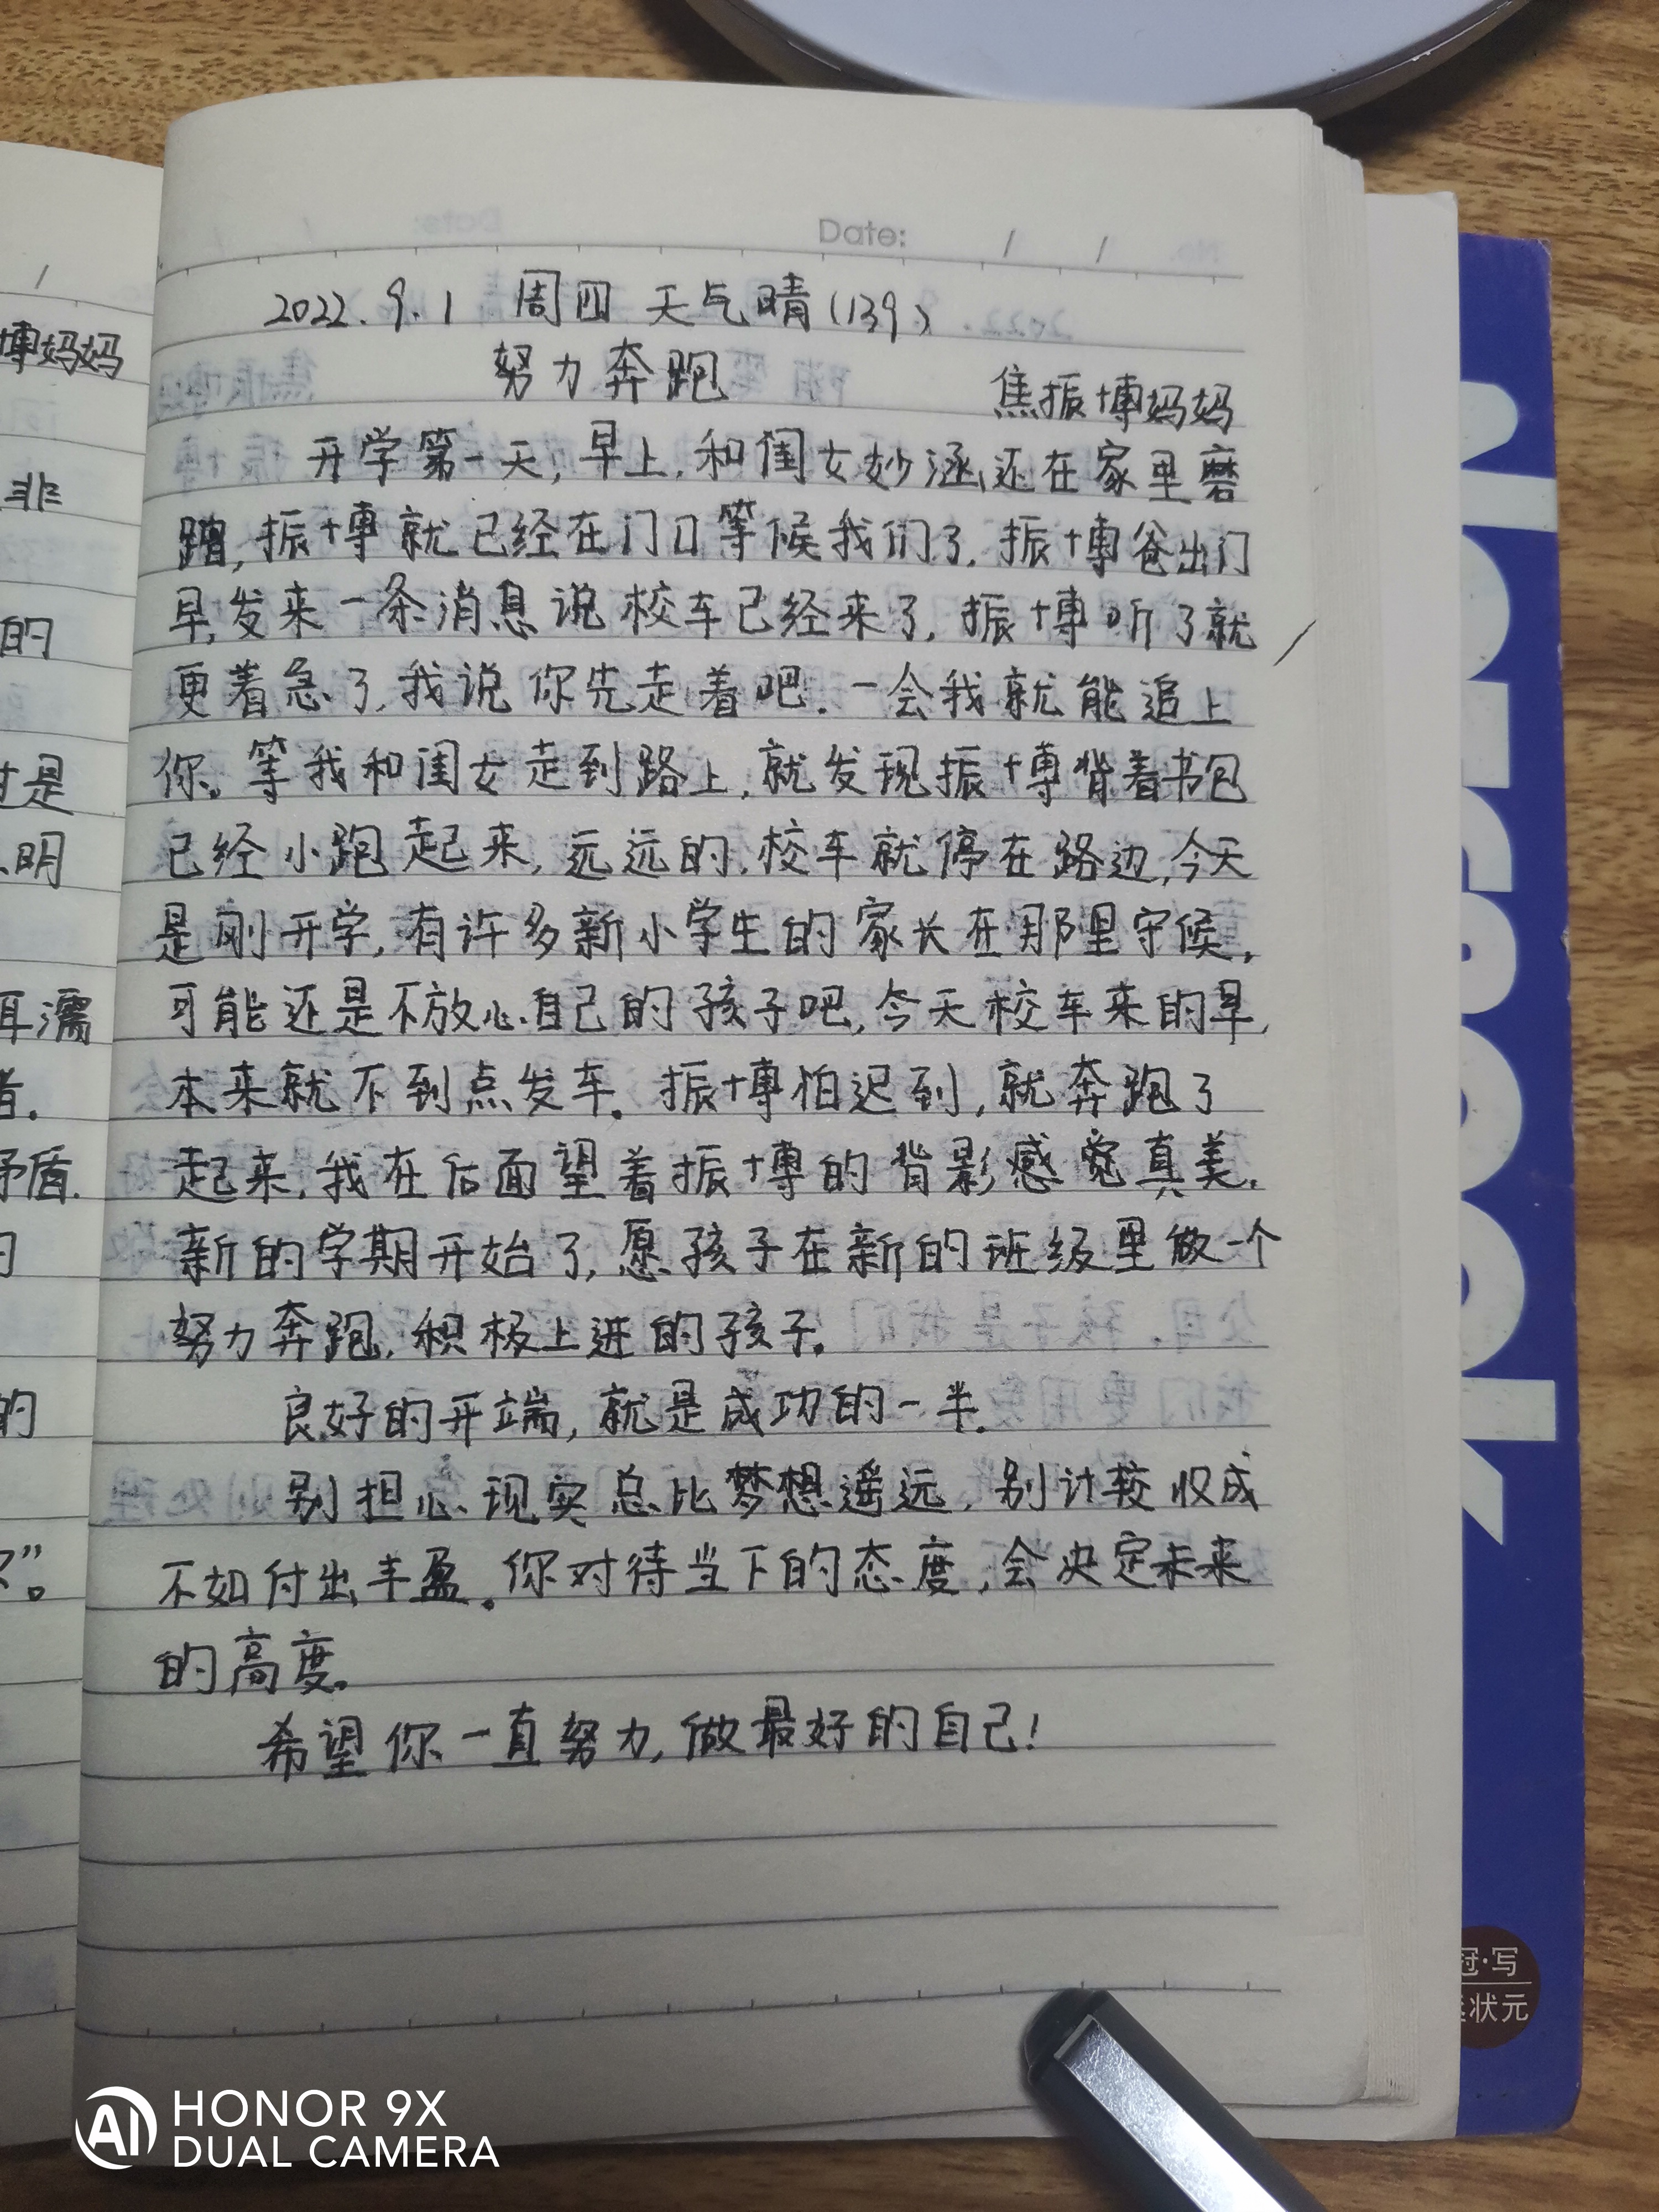 Date: / /
2022.9.1 周四 天气晴(139)
努力奔跑
焦振博妈妈
开学第一天,早上,和闺女妙涵还在家里磨
蹭,振博就已经在门口等候我们了,振博爸出门
早,发来一条消息说校车已经来了,振博听了就
更着急了,我说你先走着吧.一会我就能追上
你。等我和闺女走到路上,就发现振博背着书包
已经小跑起来,远远的,校车就停在路边,今天
是刚开学,有许多新小学生的家长在那里守候,
可能还是不放心自己的孩子吧,今天校车来的早,
本来就不到点发车。振博怕迟到,就奔跑了
起来,我在后面望着振博的背影感觉真美.
新的学期开始了,愿孩子在新的班级里做一个
努力奔跑,积极上进的孩子。
良好的开端,就是成功的一半.
别担心现实总比梦想遥远,别计较收成
不如付出丰盈。你对待当下的态度,会决定未来
的高度。
希望你一直努力,做最好的自己!
博妈妈
非
的
是
明
耳濡
者.
矛盾.
的
”。
Notebook
冠·写
状元
HONOR 9X
DUAL CAMERA